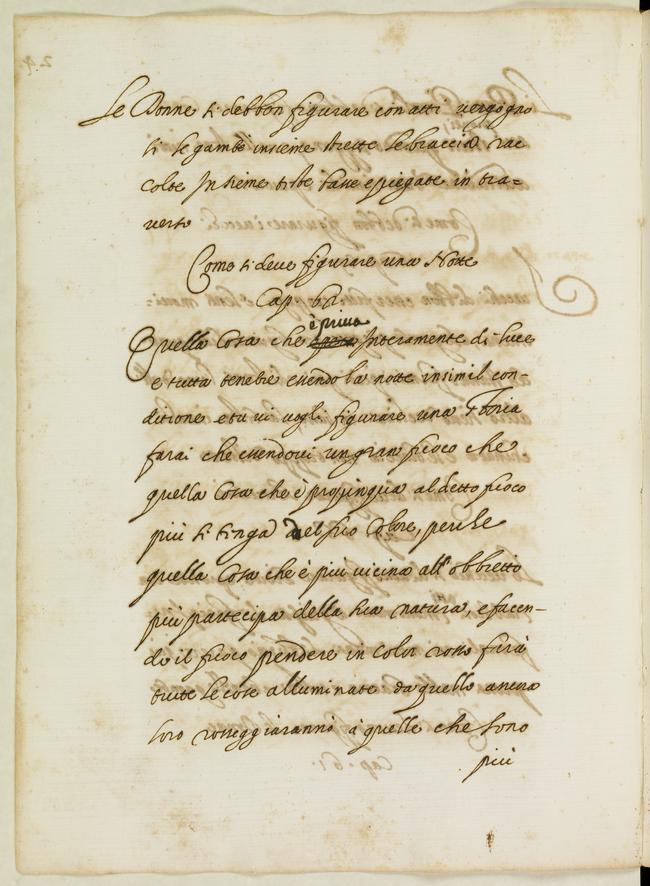 Le Donne si debbon figurare con atti vergogno
si le gambe insieme strette le braccia rac
colte Insieme teste basse e piegate in tra=
verso
Como si deve figurare una Notte
Cap. 62.
è priva
Quella Cosa che Interamente di luce
e tutta tenebre essendo la notte in simil con-
ditione e tu vi vogli figurare una storia
farai che essendovi un gran fuoco che
quella Cosa che è propinqua al detto fuoco
più si tinga del suo Colore, perche
quella Cosa che è più vicina all'obbietto
più partecipa della sua natura, e facen-
do il fuoco pendere in color rosso farà
tutte le cose alluminate da quello ancora
loro rosseggiaranno à quelle che sono
più